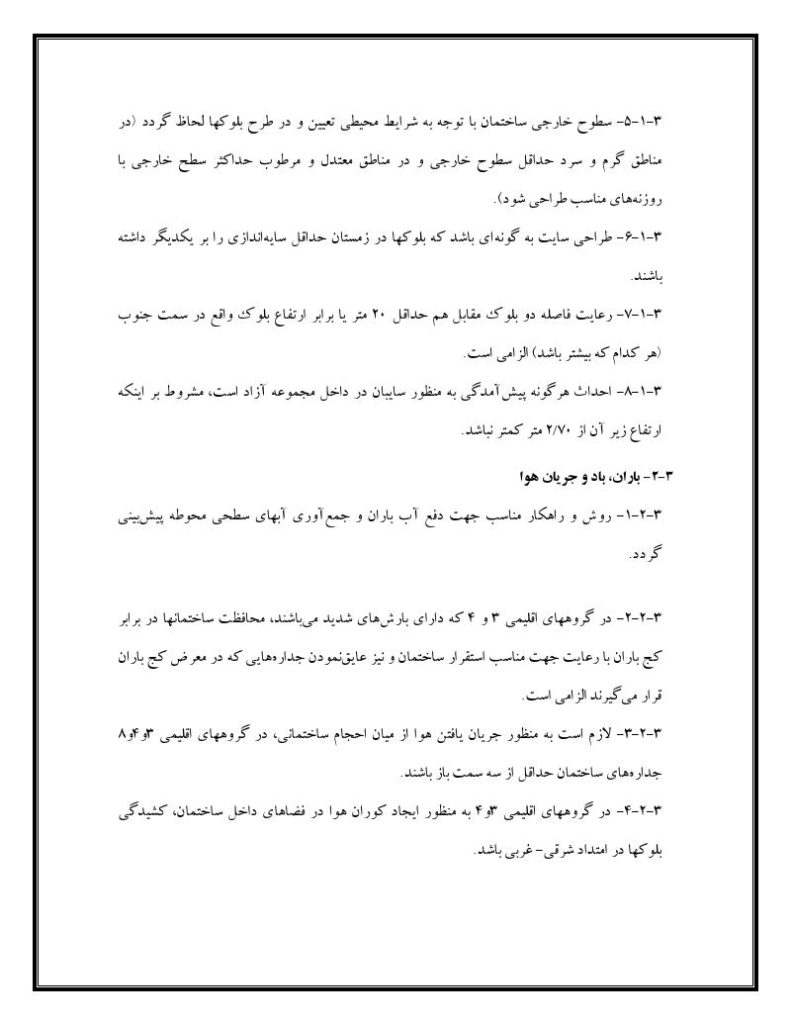 ۳-۱-۵- سطوح خارجی ساختمان با توجه به شرایط محیطی تعیین و در طرح بلوکها لحاظ گردد (در
مناطق گرم و سرد حداقل سطوح خارجی و در مناطق معتدل و مرطوب حداکثر سطح خارجی با
روزنه‌های مناسب طراحی شود).
۳-۱-۶- طراحی سایت به گونه‌ای باشد که بلوکها در زمستان حداقل سایه‌اندازی را بر یکدیگر داشته
باشند.
۳-۱-۷- رعایت فاصله دو بلوک مقابل هم حداقل ۲۰ متر یا برابر ارتفاع بلوک واقع در سمت جنوب
(هر کدام که بیشتر باشد) الزامی است.
۳-۱-۸- احداث هرگونه پیش‌آمدگی به منظور سایبان در داخل مجموعه آزاد است، مشروط بر اینکه
ارتفاع زیر آن از ۲/۷۰ متر کمتر نباشد.
۳-۲- باران، باد و جریان هوا
۳-۲-۱- روش و راهکار مناسب جهت دفع آب باران و جمع‌آوری آبهای سطحی محوطه پیش‌بینی
گردد.
۳-۲-۲- در گروههای اقلیمی ۳ و ۴ که دارای بارش‌های شدید می‌باشند، محافظت ساختمانها در برابر
کج باران با رعایت جهت مناسب استقرار ساختمان و نیز عایق‌نمودن جداره‌هایی که در معرض کج باران
قرار می‌گیرند الزامی است.
۳-۲-۳- لازم است به منظور جریان یافتن هوا از میان احجام ساختمانی، در گروههای اقلیمی ۳و۴و۸
جداره‌های ساختمان حداقل از سه سمت باز باشند.
۳-۲-۴- در گروههای اقلیمی ۳و۴ به منظور ایجاد کوران هوا در فضاهای داخل ساختمان، کشیدگی
بلوکها در امتداد شرقی- غربی باشد.